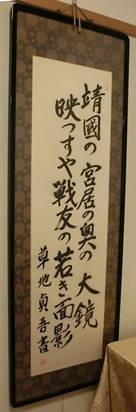 靖國の宮居の奥の大鏡
映つすや戦友の若き面影
草地貞吾書